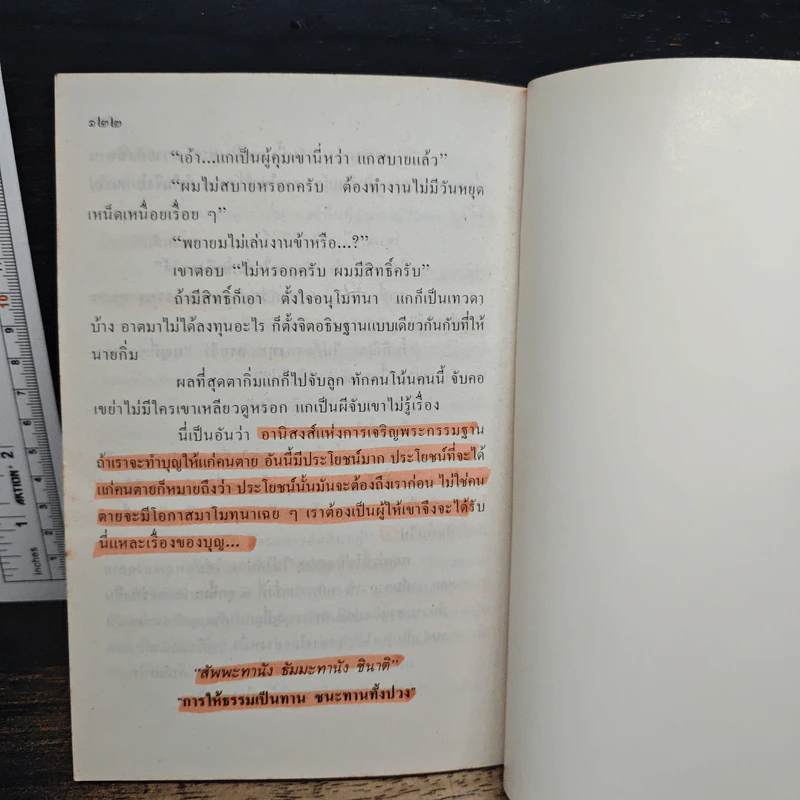 ๑๒๒
“เอ้า...แกเป็นผู้คุมเขานี่หว่า แกสบายแล้ว”
“ผมไม่สบายหรอกครับ ต้องทำงานไม่มีวันหยุด
เหน็ดเหนื่อยเรื่อย ๆ”
“พยายมไม่เล่นงานข้าหรือ...?”
เขาตอบ “ไม่หรอกครับ ผมมีสิทธิ์ครับ”
ถ้ามีสิทธิ์ก็เอา ตั้งใจอนุโมทนา แกก็เป็นเทวดา
บ้าง อาตมาไม่ได้ลงทุนอะไร ก็ตั้งจิตอธิษฐานแบบเดียวกันกับที่ให้
นายกิ่ม
ผลที่สุดตากิ่มแกก็ไปจับลูก ทักคนโน้นคนนี้ จับคอ
เขย่าไม่มีใครเขาเหลียวดูหรอก แกเป็นผีจับเขาไม่รู้เรื่อง
นี่เป็นอันว่า อานิสงส์แห่งการเจริญพระกรรมฐาน
ถ้าเราจะทำบุญให้แก่คนตาย อันนี้มีประโยชน์มาก ประโยชน์ที่จะได้
แก่คนตายก็หมายถึงว่า ประโยชน์นั้นมันจะต้องถึงเราก่อน ไม่ใช่คน
ตายจะมีโอกาสมาโมทนาเฉย ๆ เราต้องเป็นผู้ให้เขาจึงจะได้รับ
นี่แหละเรื่องของบุญ...
“สัพพะทานัง ธัมมะทานัง ชินาติ”
“การให้ธรรมเป็นทาน ชนะทานทั้งปวง”
10
9
8
7
6
5
4
3
2
1
2
1
ACTION
inches